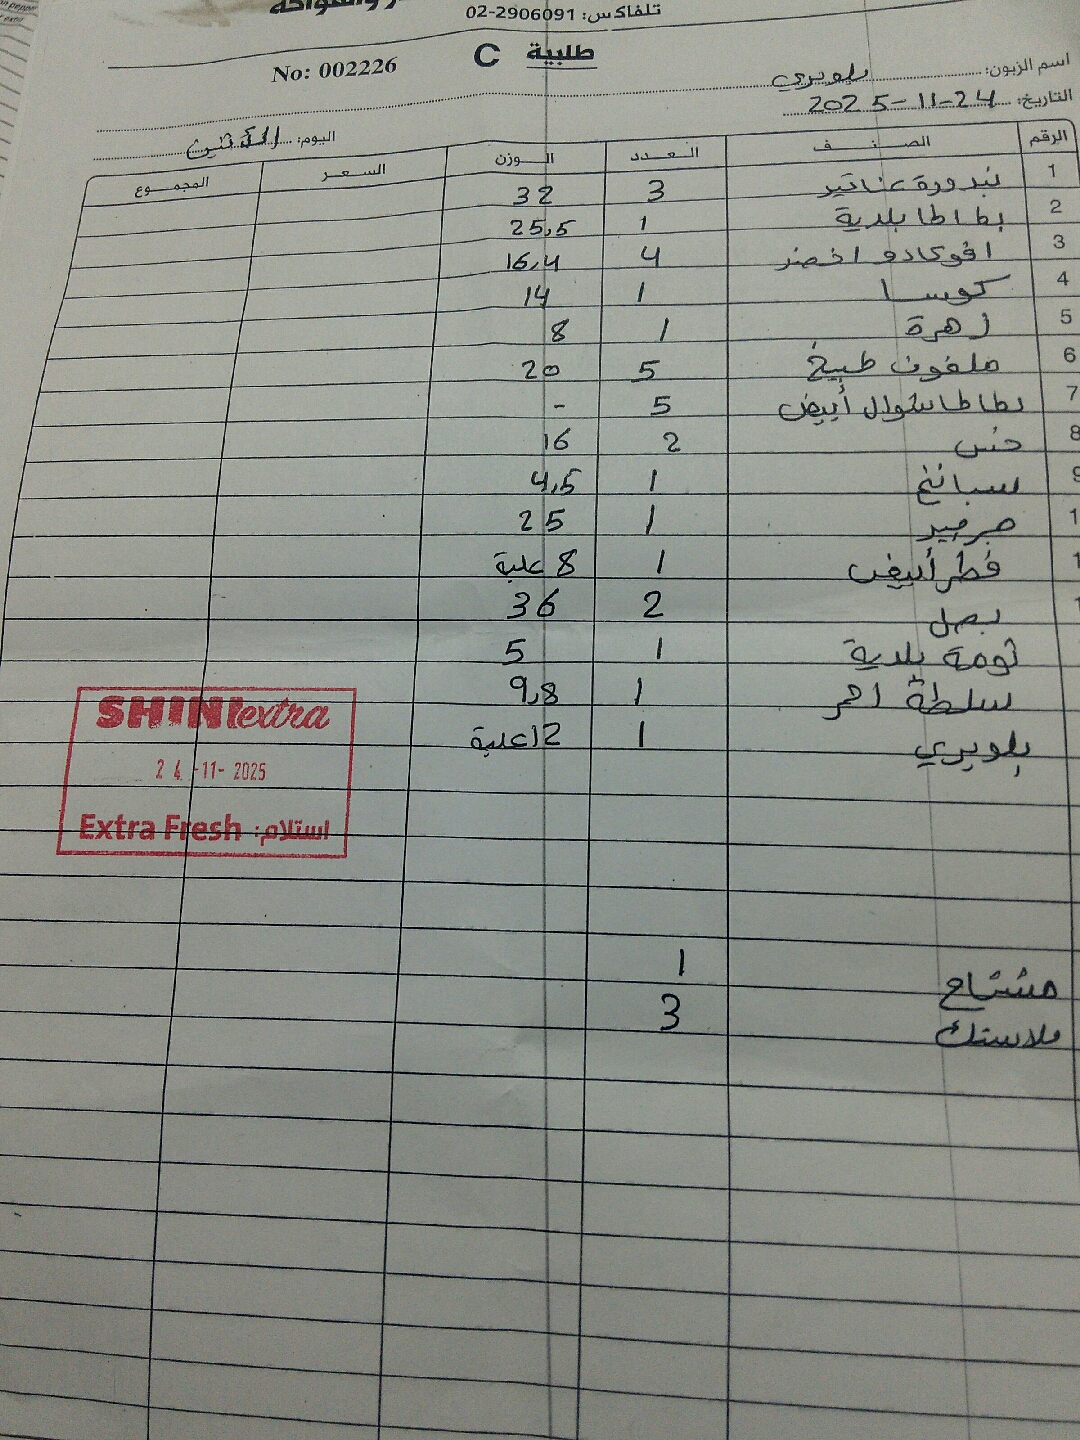 تلفاكس: 02-2906091
طلبية C
No: 002226
اسم الزبون: بلوبري
التاريخ: 2025-11-24
اليوم: الاثنين
الرقم الصنف العدد الوزن السعر المجموع
1 بندورة عناقيد 3 32
2 بطاطا بلدية 1 25,5
3 افوكادو اخضر 4 16,4
4 كوسا 1 14
5 زهرة 1 8
6 ملفوف طبيخ 5 20
7 بطاطا شوال أبيض 5 -
8 خس 2 16
9 سبانخ 1 4,5
1 جرجير 1 25
1 فطر أبيض 1 8 علبة
1 بصل 2 36
ثومة بلدية 1 5
سلطة احمر 1 9,8
بلوبري 1 12 علبة
SHINI extra
24-11-2025
Extra Fresh استلام:
مشتاح 1
بلاستك 3